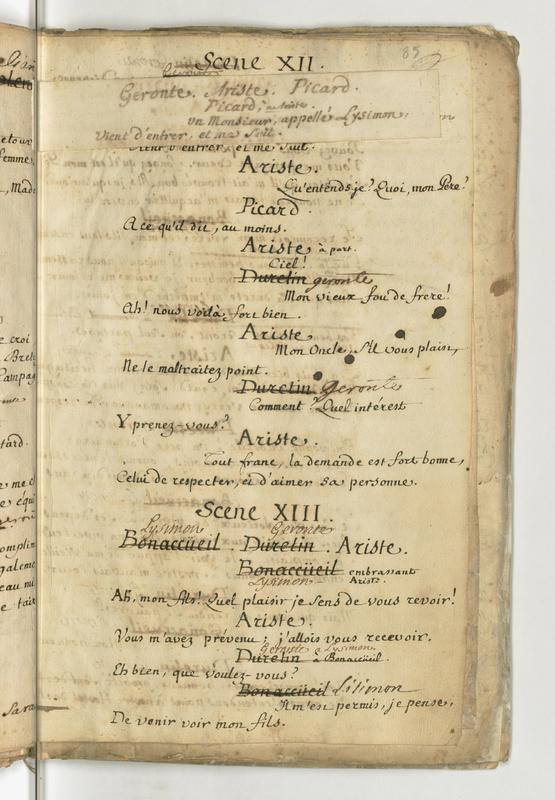 85
Scene XII.
Geronte. Ariste. Picard.
Picard, à Ariste.
un Monsieur, appellé Lysimon,
vient d'entrer, et me suit.
vient d'entrer, et me suit.
Ariste.
Qu'entends-je? Quoi, mon Pere?
Picard.
A ce qu'il dit, au moins.
Ariste, à part.
Ciel!
Durelin geronte
Mon vieux fou de frere!
Ah! nous voilà fort bien.
Ariste.
Mon Oncle, s'il vous plaist,
Ne le maltraitez point.
Durelin Geronte
Comment? Quel intérest
Y prenez-vous?
Ariste.
Tout franc, la demande est fort bonne,
Celui de respecter, et d'aimer sa personne.
Scene XIII.
Lysimon Geronte
Bonaccüeil. Durelin. Ariste.
Bonaccüeil embrassant
Lysimon Ariste.
Ah, mon fils! Quel plaisir je sens de vous revoir!
Ariste.
Vous m'avez prévenu; j'allois vous recevoir.
Geronte a Lysimon
Durelin à Bonaccüeil.
Eh bien, que voulez-vous?
Bonaccüeil Lisimon
Il m'est permis, je pense,
De venir voir mon fils.